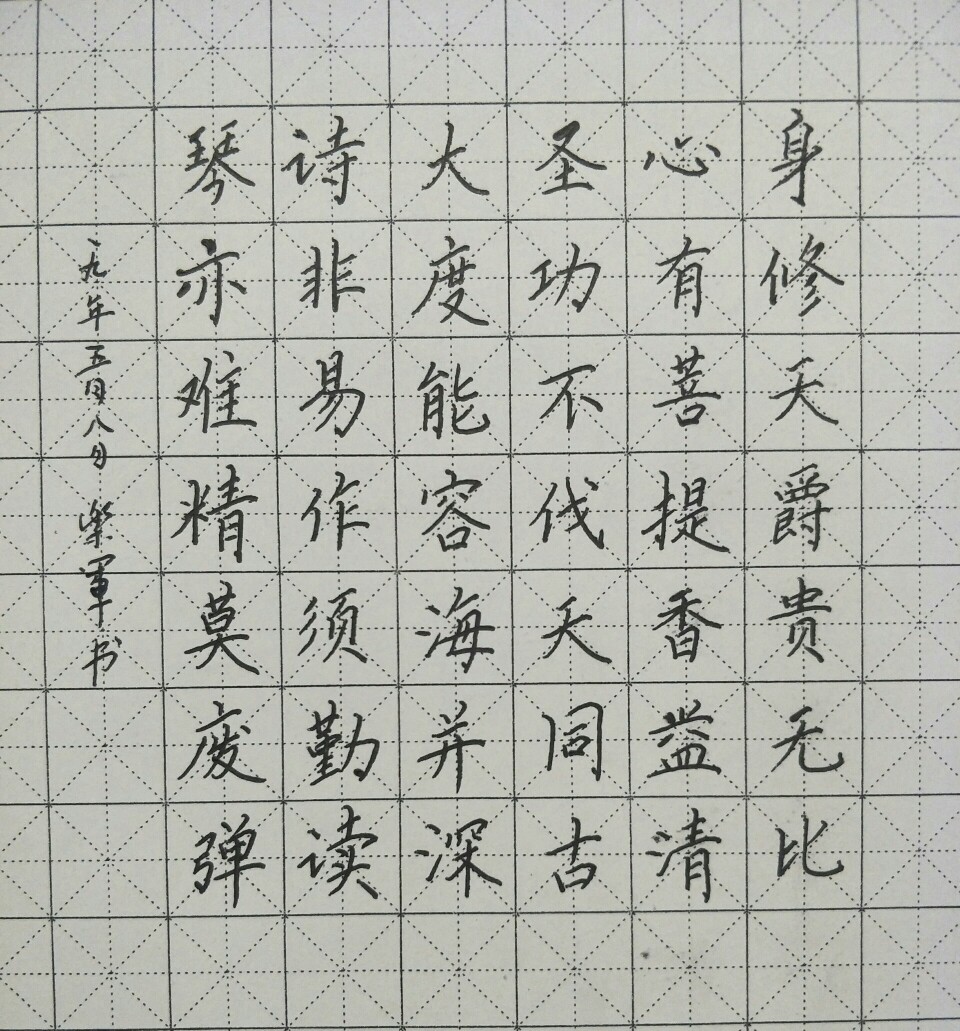 身修天爵贵无比
心有菩提香益清
圣功不伐天同古
大度能容海并深
诗非易作须勤读
琴亦难精莫废弹
一九年五月八日 乐军书